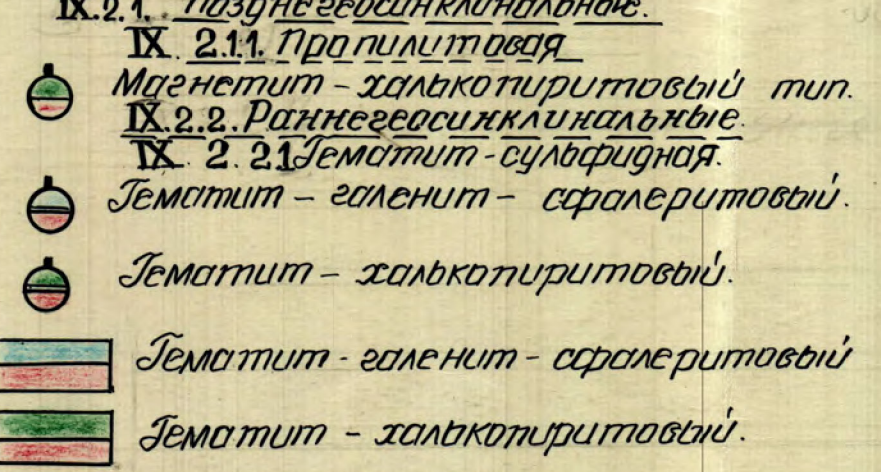 IX.2.1. Позднегеосинклинальные.
IX 2.1.1. Пропилитовая
Магнетит - халькопиритовый тип.
IX.2.2. Раннегеосинклинальные.
IX 2.21 Гематит-сульфидная.
Гематит - галенит - сфалеритовый.
Гематит - халькопиритовый.
Гематит - галенит - сфалеритовый
Гематит - халькопиритовый.